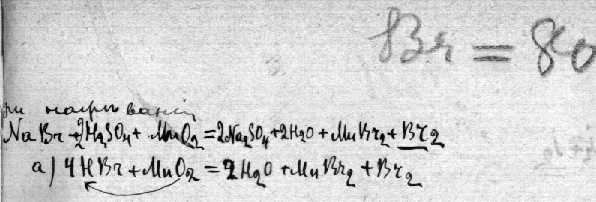 Br = 80
при нагревании
NaBr + 2H₂SO₄ + MnO₂ = 2Na₂SO₄ + 2H₂O + MnBr₂ + Br₂
а) 4HBr + MnO₂ = 2H₂O + MnBr₂ + Br₂